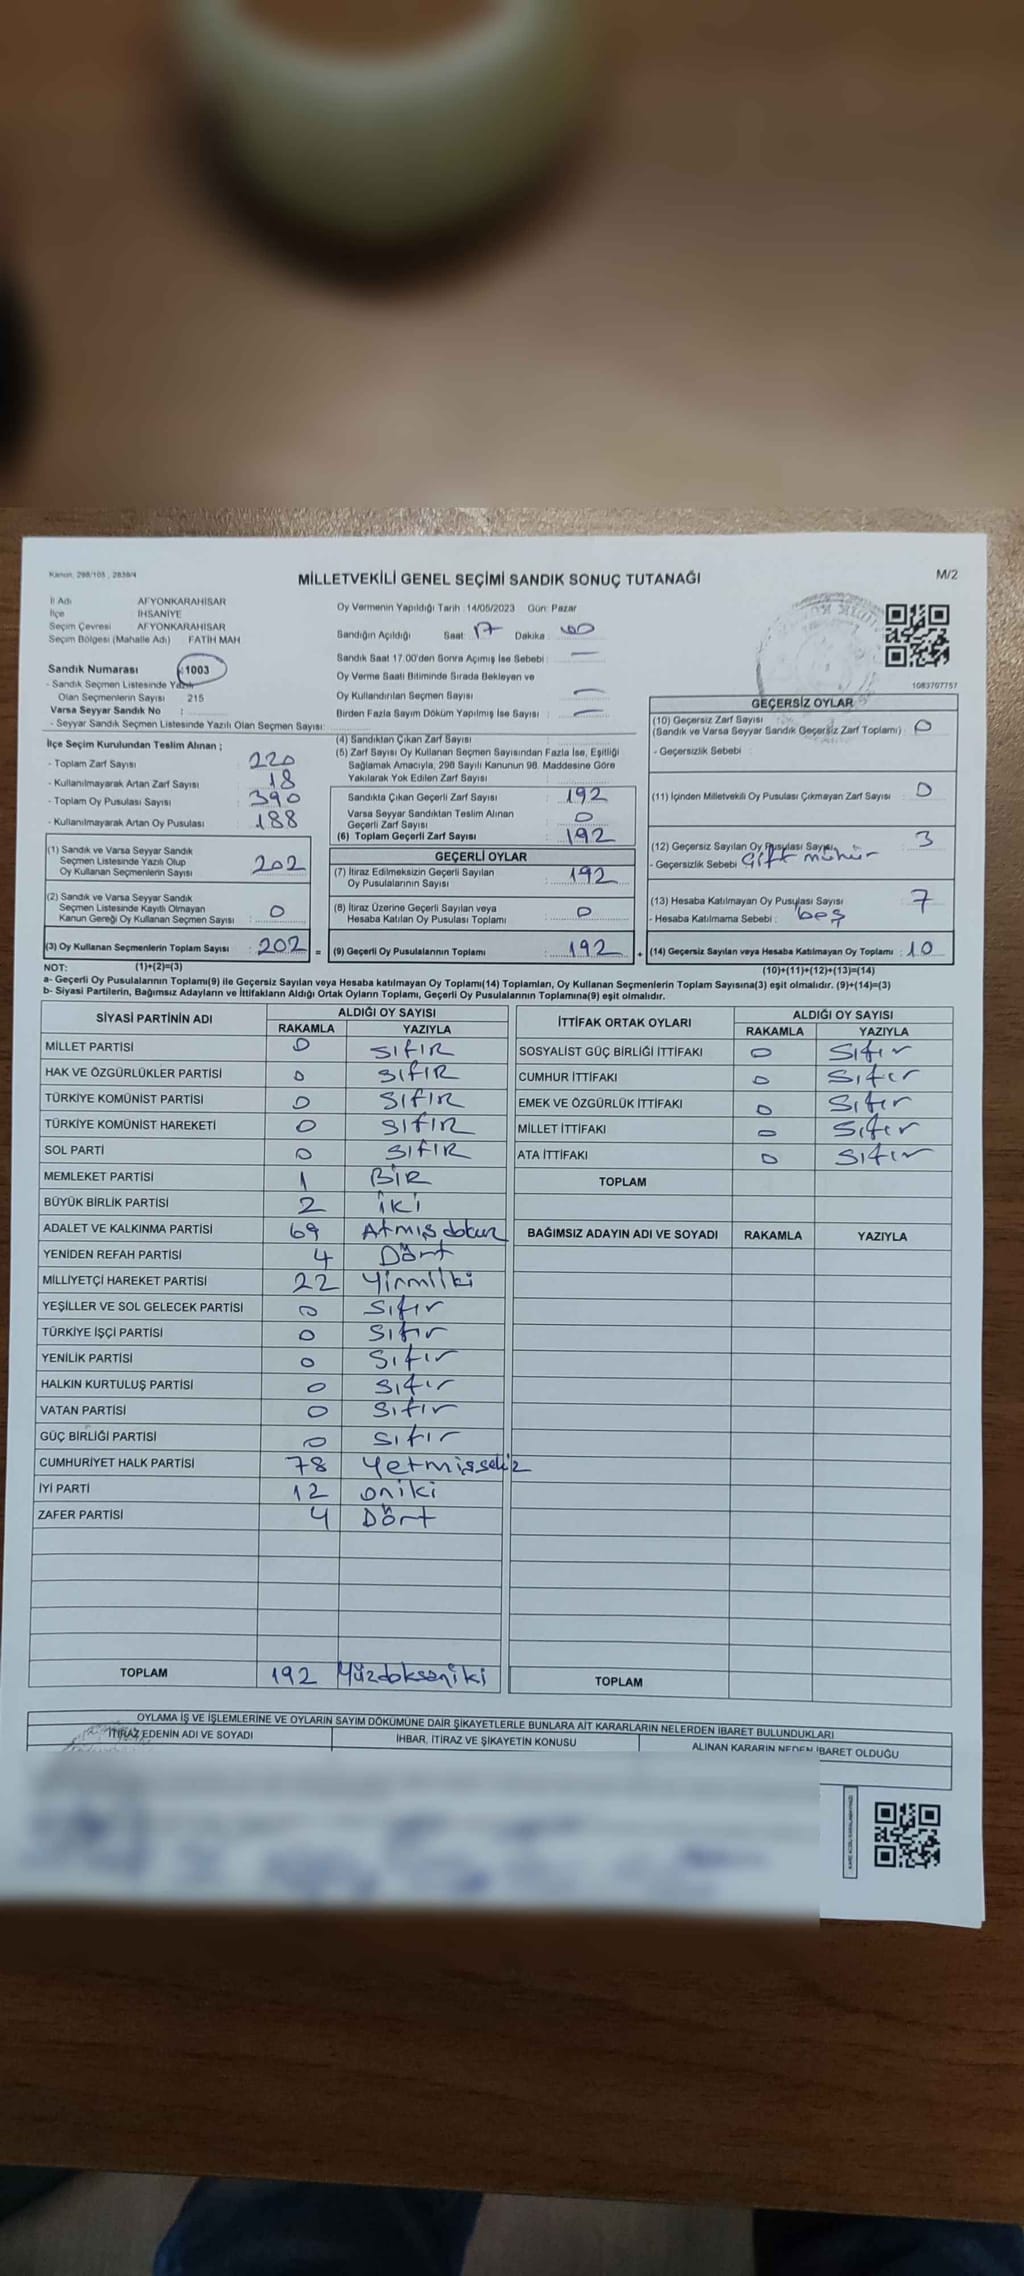 Kanun, 298/105 , 2839/4
MİLLETVEKİLİ GENEL SEÇİMİ SANDIK SONUÇ TUTANAĞI
M/2
İl Adı AFYONKARAHİSAR
İlçe İHSANİYE
Seçim Çevresi AFYONKARAHİSAR
Seçim Bölgesi (Mahalle Adı) FATİH MAH
Sandık Numarası 1003
- Sandık Seçmen Listesinde Yazılı
Olan Seçmenlerin Sayısı 215
Varsa Seyyar Sandık No :
- Seyyar Sandık Seçmen Listesinde Yazılı Olan Seçmen Sayısı:
Oy Vermenin Yapıldığı Tarih :14/05/2023 Gün: Pazar
Sandığın Açıldığı Saat: 17 Dakika : 00
Sandık Saat 17.00'den Sonra Açımış İse Sebebi : —
Oy Verme Saati Bitiminde Sırada Bekleyen ve
Oy Kullandırılan Seçmen Sayısı : —
Birden Fazla Sayım Döküm Yapılmış İse Sayısı : —
1083707757
İlçe Seçim Kurulundan Teslim Alınan ;
- Toplam Zarf Sayısı : 220
- Kullanılmayarak Artan Zarf Sayısı : 18
- Toplam Oy Pusulası Sayısı : 390
- Kullanılmayarak Artan Oy Pusulası : 188
(1) Sandık ve Varsa Seyyar Sandık
Seçmen Listesinde Yazılı Olup
Oy Kullanan Seçmenlerin Sayısı : 202
(2) Sandık ve Varsa Seyyar Sandık
Seçmen Listesinde Kayıtlı Olmayan
Kanun Gereği Oy Kullanan Seçmen Sayısı : 0
(3) Oy Kullanan Seçmenlerin Toplam Sayısı : 202 =
(1)+(2)=(3)
(4) Sandıktan Çıkan Zarf Sayısı :
(5) Zarf Sayısı Oy Kullanan Seçmen Sayısından Fazla İse, Eşitliği
Sağlamak Amacıyla, 298 Sayılı Kanunun 98. Maddesine Göre
Yakılarak Yok Edilen Zarf Sayısı :
Sandıkta Çıkan Geçerli Zarf Sayısı : 192
Varsa Seyyar Sandıktan Teslim Alınan
Geçerli Zarf Sayısı : 0
(6) Toplam Geçerli Zarf Sayısı : 192
GEÇERLİ OYLAR
(7) İtiraz Edilmeksizin Geçerli Sayılan
Oy Pusulalarının Sayısı : 192
(8) İtiraz Üzerine Geçerli Sayılan veya
Hesaba Katılan Oy Pusulası Toplamı : 0
(9) Geçerli Oy Pusulalarının Toplamı : 192 +
GEÇERSİZ OYLAR
(10) Geçersiz Zarf Sayısı
(Sandık ve Varsa Seyyar Sandık Geçersiz Zarf Toplamı) : 0
- Geçersizlik Sebebi :
(11) İçinden Milletvekili Oy Pusulası Çıkmayan Zarf Sayısı : 0
(12) Geçersiz Sayılan Oy Pusulası Sayısı : 3
- Geçersizlik Sebebi Çift mühür
(13) Hesaba Katılmayan Oy Pusulası Sayısı : 7
- Hesaba Katılmama Sebebi : beş
(14) Geçersiz Sayılan veya Hesaba Katılmayan Oy Toplamı : 10
(10)+(11)+(12)+(13)=(14)
NOT:
a- Geçerli Oy Pusulalarının Toplamı(9) ile Geçersiz Sayılan veya Hesaba katılmayan Oy Toplamı(14) Toplamları, Oy Kullanan Seçmenlerin Toplam Sayısına(3) eşit olmalıdır. (9)+(14)=(3)
b- Siyasi Partilerin, Bağımsız Adayların ve İttifakların Aldığı Ortak Oyların Toplamı, Geçerli Oy Pusulalarının Toplamına(9) eşit olmalıdır.
SİYASİ PARTİNİN ADI ALDIĞI OY SAYISI
RAKAMLA YAZIYLA
MİLLET PARTİSİ 0 SIFIR
HAK VE ÖZGÜRLÜKLER PARTİSİ 0 SIFIR
TÜRKİYE KOMÜNİST PARTİSİ 0 SIFIR
TÜRKİYE KOMÜNİST HAREKETİ 0 SIFIR
SOL PARTİ 0 SIFIR
MEMLEKET PARTİSİ 1 BİR
BÜYÜK BİRLİK PARTİSİ 2 iKi
ADALET VE KALKINMA PARTİSİ 69 Atmış dokuz
YENİDEN REFAH PARTİSİ 4 Dört
MİLLİYETÇİ HAREKET PARTİSİ 22 Yirmiiki
YEŞİLLER VE SOL GELECEK PARTİSİ 0 Sıfır
TÜRKİYE İŞÇİ PARTİSİ 0 Sıfır
YENİLİK PARTİSİ 0 Sıfır
HALKIN KURTULUŞ PARTİSİ 0 Sıfır
VATAN PARTİSİ 0 Sıfır
GÜÇ BİRLİĞİ PARTİSİ 0 Sıfır
CUMHURİYET HALK PARTİSİ 78 Yetmişsekiz
İYİ PARTİ 12 oniki
ZAFER PARTİSİ 4 Dört
TOPLAM 192 Yüzdokseniki
İTTİFAK ORTAK OYLARI ALDIĞI OY SAYISI
RAKAMLA YAZIYLA
SOSYALİST GÜÇ BİRLİĞİ İTTİFAKI 0 Sıfır
CUMHUR İTTİFAKI 0 Sıfır
EMEK VE ÖZGÜRLÜK İTTİFAKI 0 Sıfır
MİLLET İTTİFAKI 0 Sıfır
ATA İTTİFAKI 0 Sıfır
TOPLAM
BAĞIMSIZ ADAYIN ADI VE SOYADI RAKAMLA YAZIYLA
TOPLAM
OYLAMA İŞ VE İŞLEMLERİNE VE OYLARIN SAYIM DÖKÜMÜNE DAİR ŞİKAYETLERLE BUNLARA AİT KARARLARIN NELERDEN İBARET BULUNDUKLARI
İTİRAZ EDENİN ADI VE SOYADI İHBAR, İTİRAZ VE ŞİKAYETİN KONUSU ALINAN KARARIN NEDEN İBARET OLDUĞU